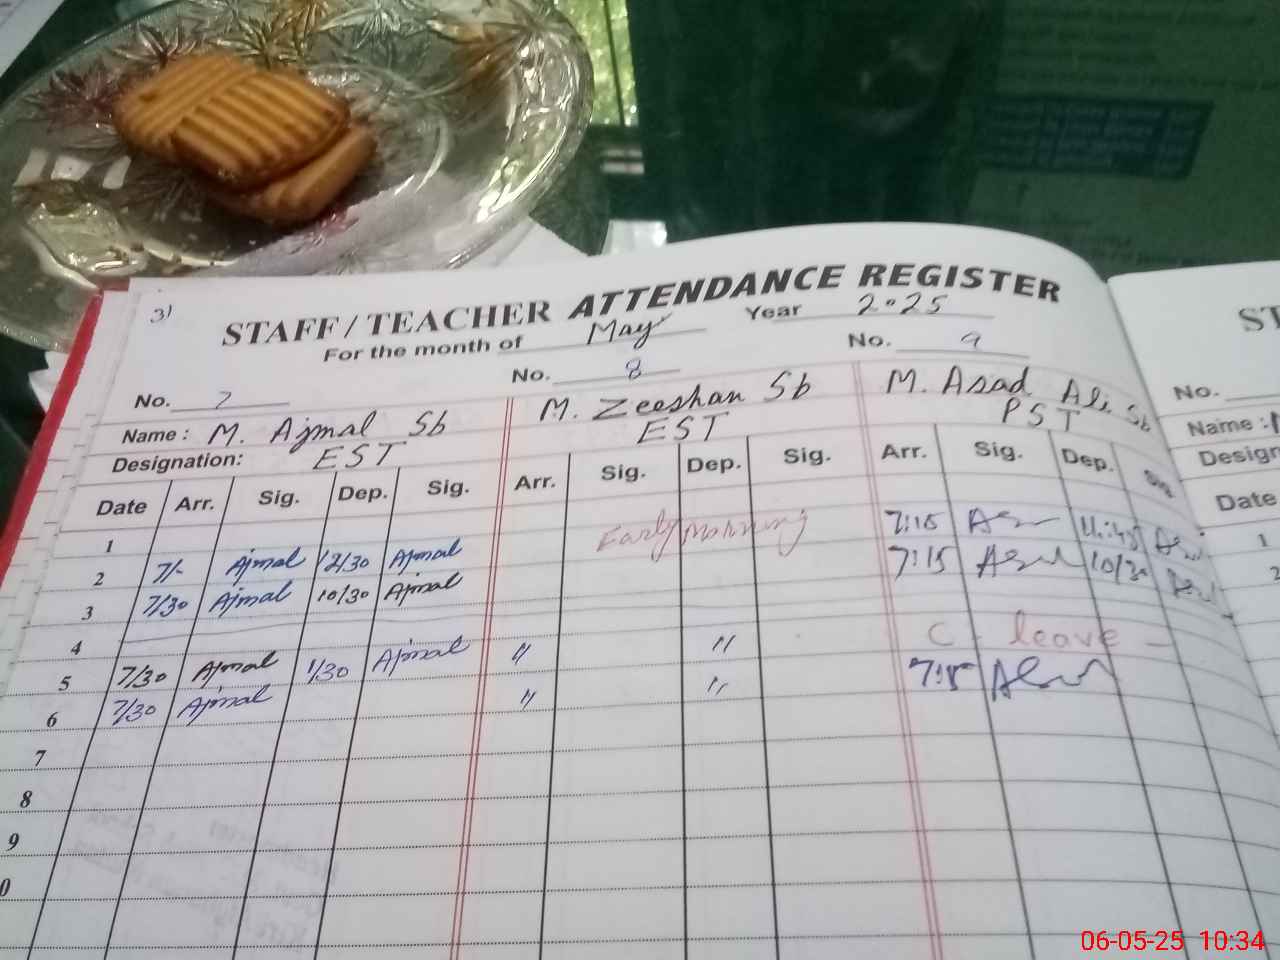 3)
STAFF/TEACHER ATTENDANCE REGISTER
For the month of May Year 2025
No. 7 No. 8 No. 9
Name : M. Ajmal Sb M. Zeeshan Sb M. Asad Ali Sb
Designation: EST EST PST
Date Arr. Sig. Dep. Sig. Arr. Sig. Dep. Sig. Arr. Sig. Dep. Sig
1 Early Morning 7:15
2 7/- Ajmal 12/30 Ajmal 7:15 10/30
3 7/30 Ajmal 10/30 Ajmal
4 C - leave -
5 7/30 Ajmal 1/30 Ajmal " " 7:15
6 7/30 Ajmal " "
7
8
9
0
No.
Name :
Design
Date
1
2
06-05-25 10:34